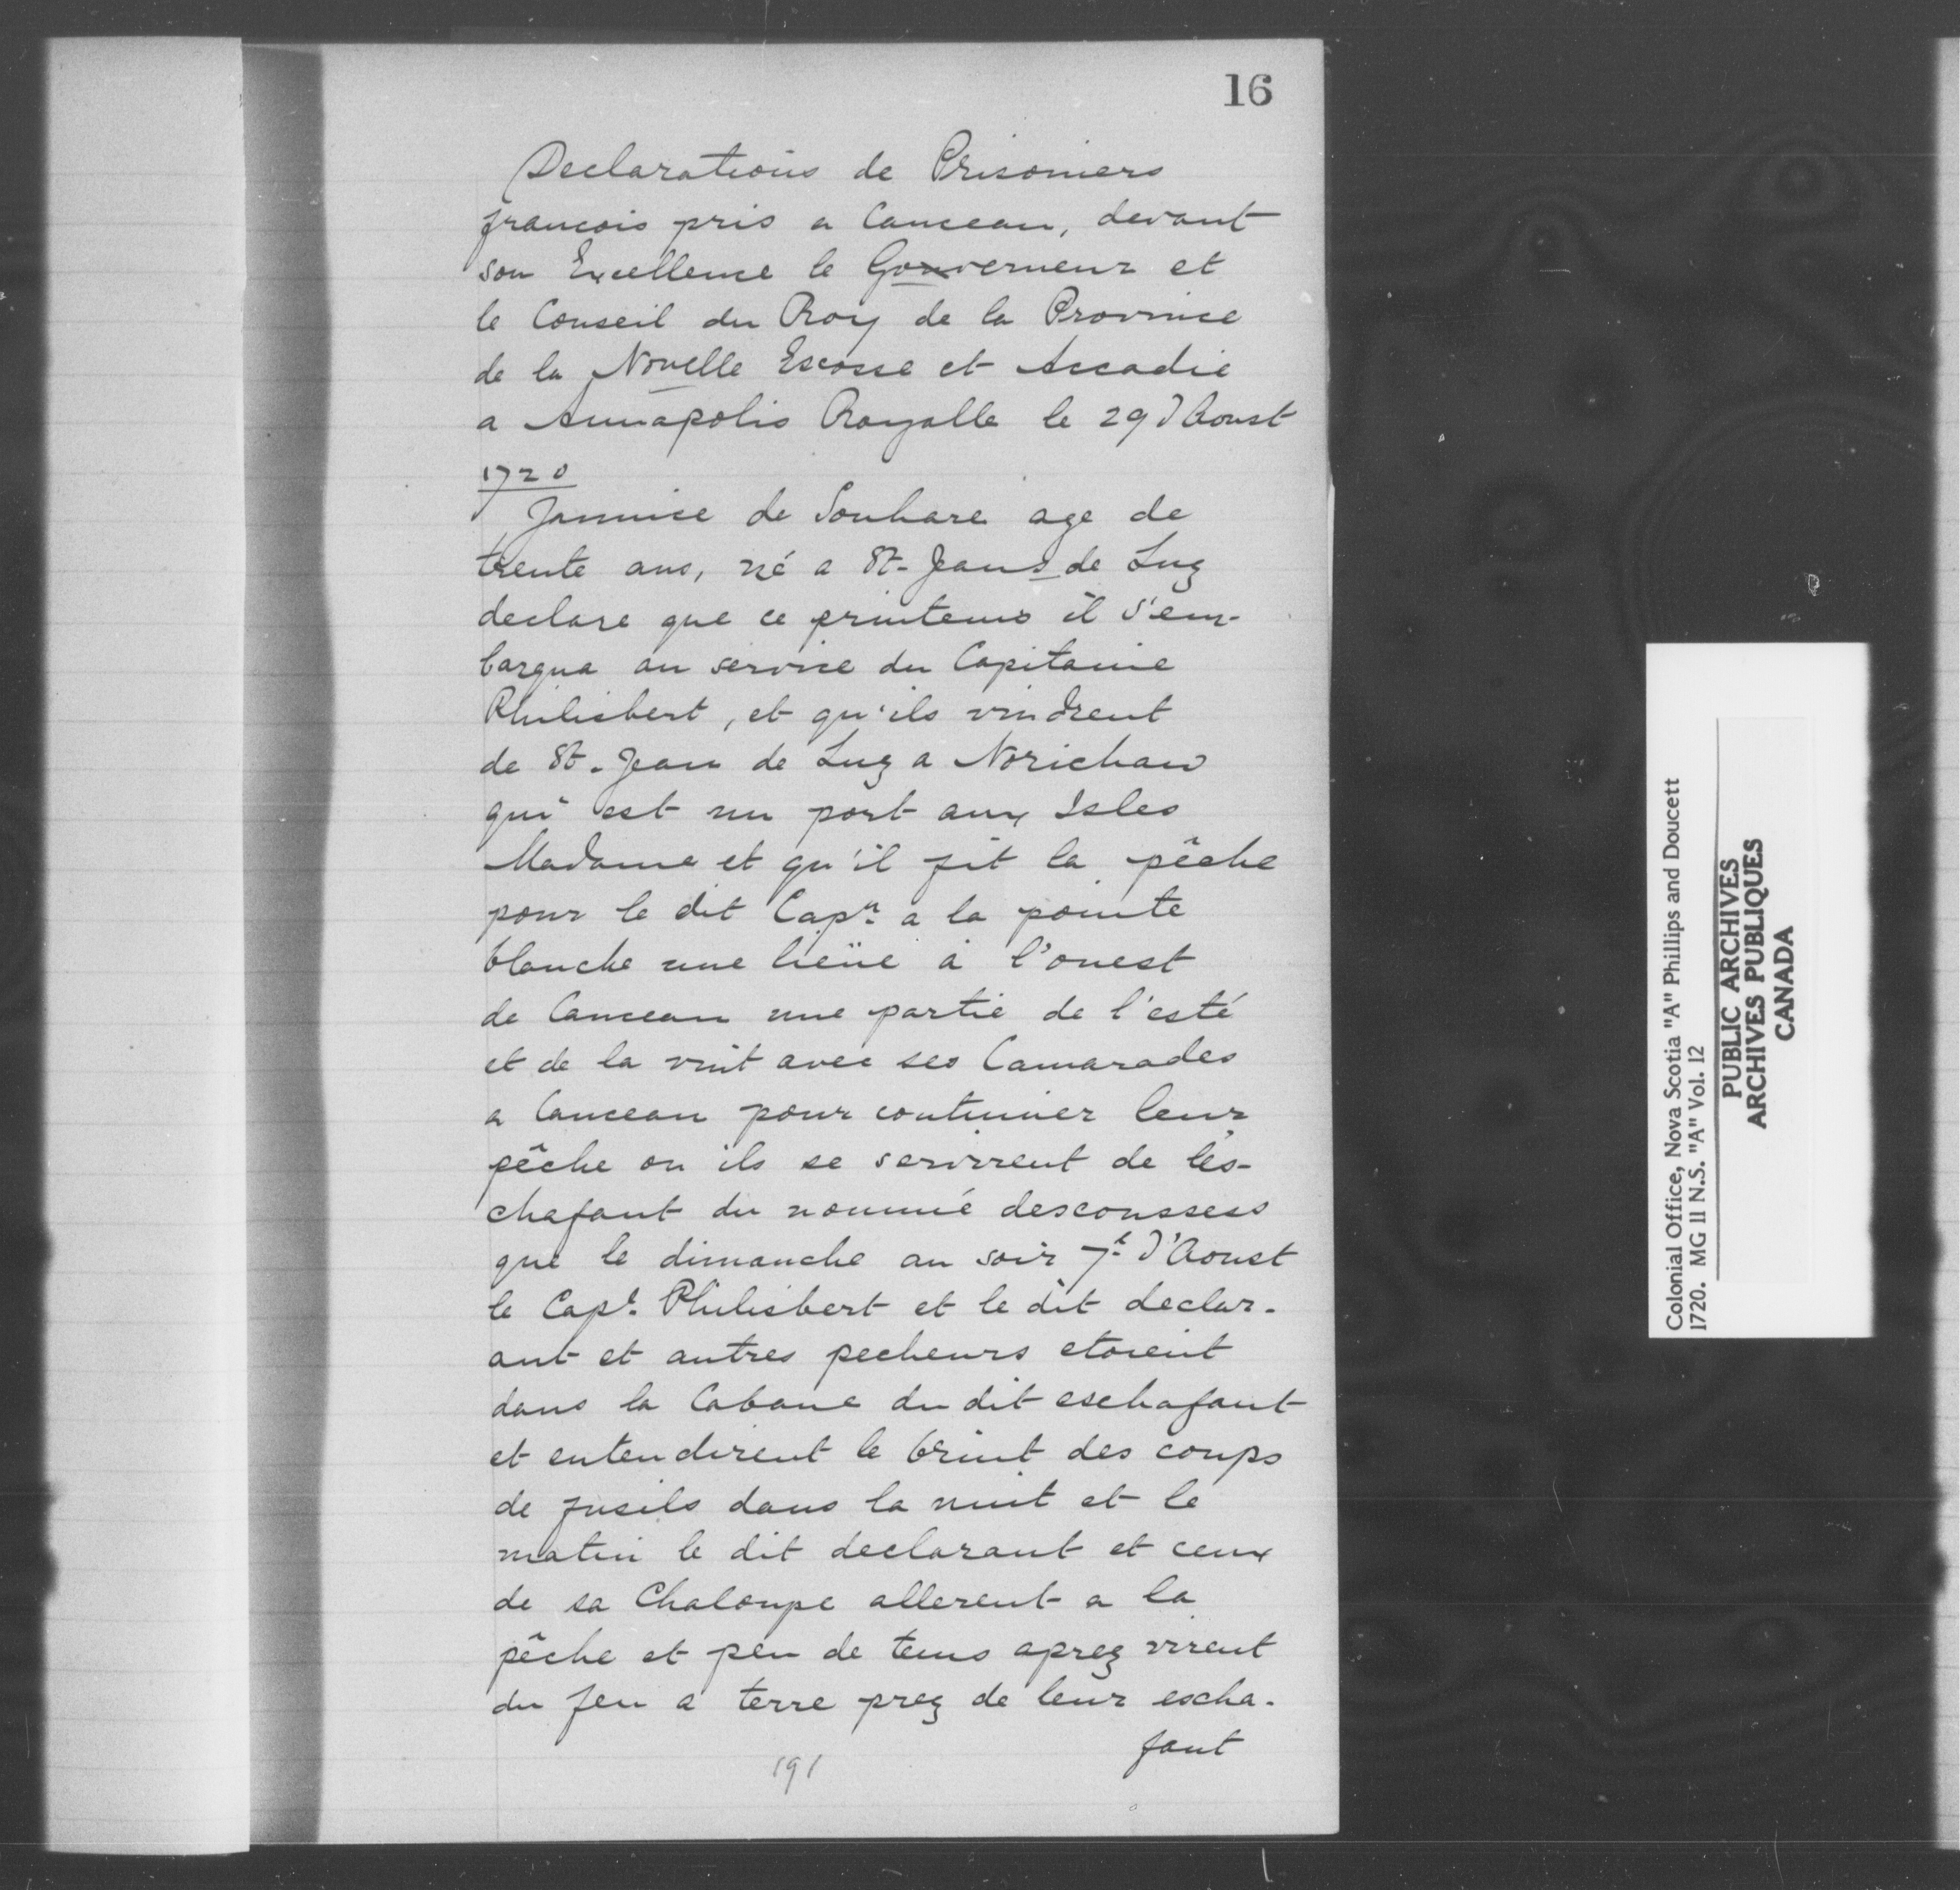 16
Declarations de Prisoniers
francois pris a Canceau, devant
son Excellence le Gouverneur et
le Conseil du Roy de la Province
de la Novelle Escosse et Accadie
a Annapolis Royalle le 29 d'Aoust
1720
Jannice de Souhare age de
trente ans, né a St-Jean de Luz
declare que ce printems il s'em-
barqua au service du Capitaine
Philisbert, et qu'ils vindrent
de St. Jean de Luz a Norichaw
qui est un port aux Isles
Madame et qu'il fit la pêche
pour le dit Capn a la pointe
blanche une lieüe à l'ouest
de Canceau une partie de l'esté
et de la vint avec ses Camarades
a Canceau pour continuer leur
pêche ou ils se servirent de l'és-
chafaut du nommé descoussess
que le dimanche au soir 7e d'Aoust
le Capt. Philisbert et le dit declar-
ant et autres pecheurs etoient
dans la Cabane du dit eschafaut
et entendirent le bruit des coups
de fusils dans la nuit et le
matin le dit declarant et ceux
de sa Chaloupe allerent a la
pêche et peu de tems aprez virent
du feu a terre prez de leur escha-
faut
191
Colonial Office, Nova Scotia "A" Phillips and Doucett
1720. MG 11 N.S. "A" Vol. 12
PUBLIC ARCHIVES
ARCHIVES PUBLIQUES
CANADA